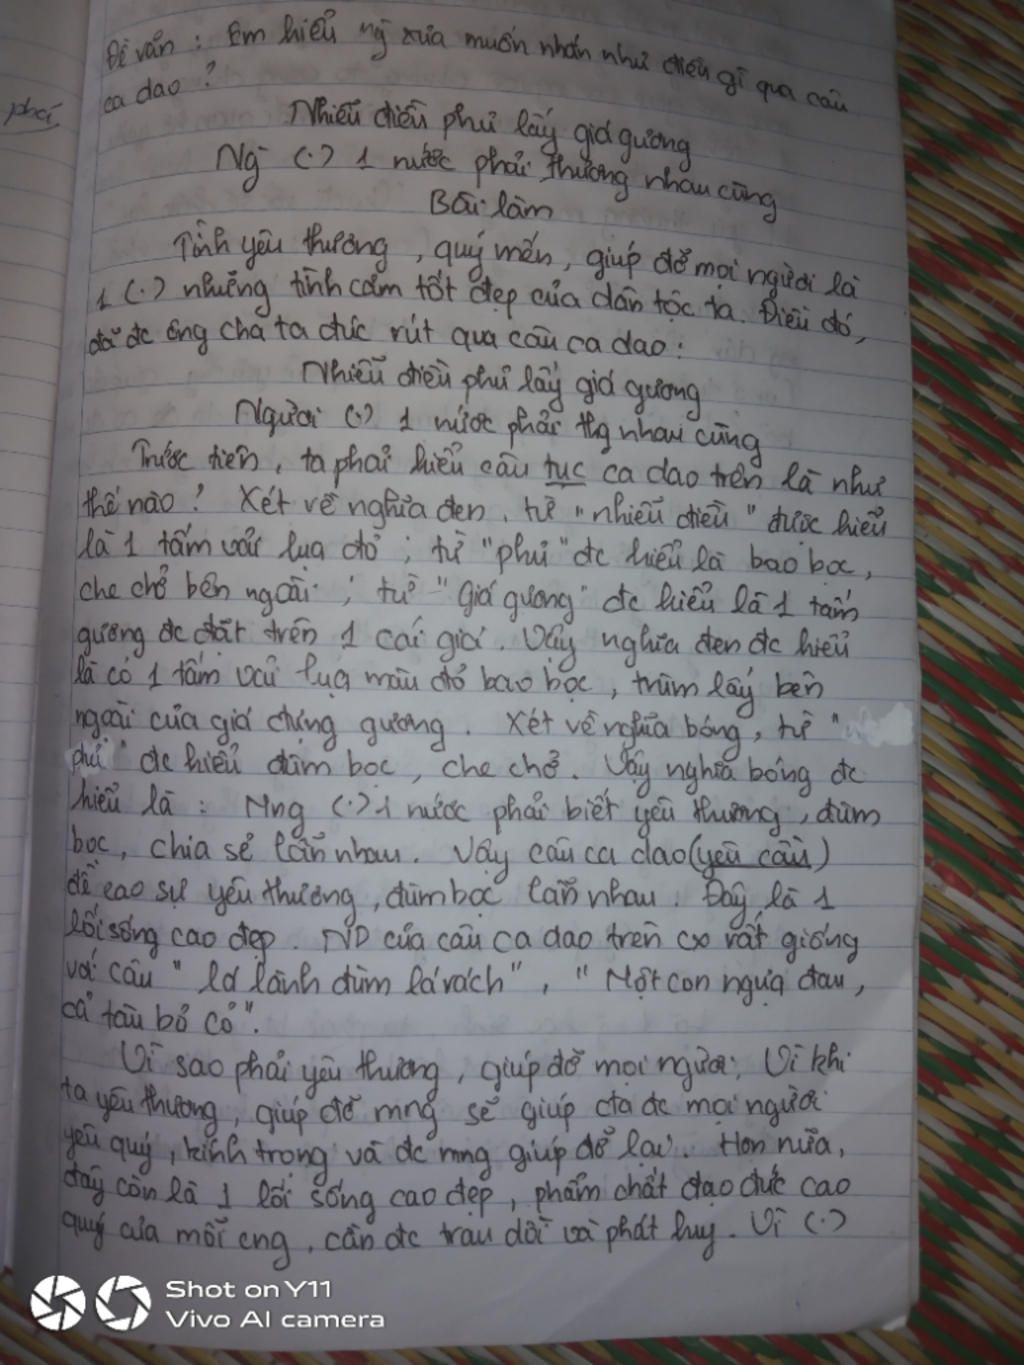 phải
Đề văn : Em hiểu ng xưa muốn nhắn như điều gì qua câu
ca dao ?
Nhiễu điều phủ lấy giá gương
Ng (.) 1 nước phải thương nhau cùng
Bài làm
Tình yêu thương , quý mến , giúp đỡ mọi người là
1 (.) những tình cảm tốt đẹp của dân tộc ta. Điều đó,
đã đc ông cha ta đúc rút qua câu ca dao :
Nhiễu điều phủ lấy giá gương
Người (.) 1 nước phải thg nhau cùng
Trước tiên , ta phải hiểu câu tục ca dao trên là như
thế nào ? Xét về nghĩa đen , từ " nhiễu điều " được hiểu
là 1 tấm vải lụa đỏ ; từ "phủ" đc hiểu là bao bọc ,
che chở bên ngoài ; từ "Giá gương" đc hiểu là 1 tấm
gương đc đặt trên 1 cái giá . Vậy nghĩa đen đc hiểu
là có 1 tấm vải lụa màu đỏ bao bọc , trùm lấy bên
ngoài của giá đựng gương . Xét về nghĩa bóng , từ "
phủ" đc hiểu đùm bọc , che chở . Vậy nghĩa bóng đc
hiểu là : Mng (.) 1 nước phải biết yêu thương , đùm
bọc , chia sẻ lẫn nhau . Vậy câu ca dao (yêu cầu)
đề cao sự yêu thương , đùm bọc lẫn nhau . Đây là 1
lối sống cao đẹp . ND của câu ca dao trên cx rất giống
với câu " lá lành đùm lá rách" , " Một con ngựa đau ,
cả tàu bỏ cỏ".
Vì sao phải yêu thương , giúp đỡ mọi người; Vì khi
ta yêu thương , giúp đỡ mng sẽ giúp cta đc mọi người
yêu quý , kính trọng và đc mng giúp đỡ lại . Hơn nữa ,
đây còn là 1 lối sống cao đẹp , phẩm chất đạo đức cao
quý của mỗi cng , cần đc trau dồi và phát huy . Vì (.)
Shot on Y11
Vivo AI camera